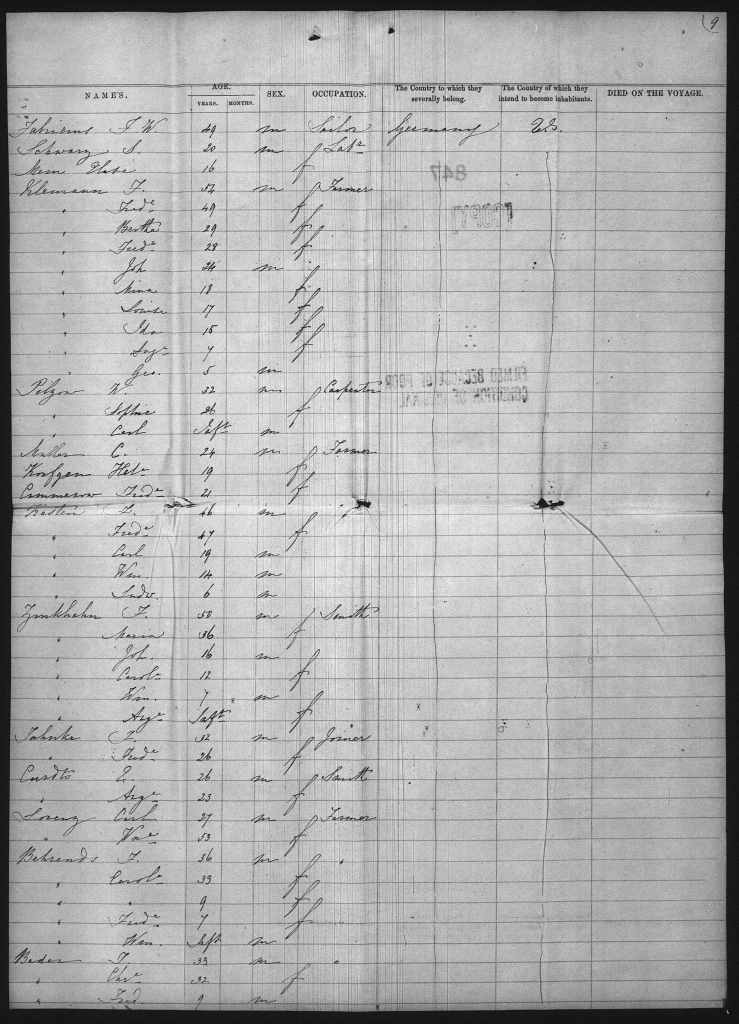 9
NAMES. AGE. YEARS. MONTHS. SEX. OCCUPATION. The Country to which they severally belong. The Country of which they intend to become inhabitants. DIED ON THE VOYAGE.
F W 49 m Sailor Germany U.S.
Schwarz S. 20 m Labr
16 f
Klemann F. 52 m Farmer
" Fredе 49 f
" Bertha 29 f
" Frede 28 f
" Joh 24 m
" Mina 18 f
" Louise 17 f
" Ida 15 f
" 7 f
" Geo. 5 m
Pelzow W. 32 m Carpenter
" Sophie 26 f
" Carl Inft m
Muller C. 24 m Farmer
Korfgen Hele 19 f
Crummerow Frede 21 f
46 m "
" Frede 47 f
" Carl 19 m
" Wm. 14 m
" Ludw. 6 m
Zinkhahn F. 50 m Smith
" Maria 36 f
" Joh. 16 m
" Carole 12 f
" Wm. 7 m
" Auge Inft f
Jahnke F. 32 m Joiner
" Frede 26 f
Curdts E. 26 m Smith
" Auge 23 f
Lorenz Carl 27 m Farmer
" Wme 53 f
Behrends F. 36 m "
" Carole 33 f
" " 9 f
" Frede 7 f
" Wm. Inft m
Beder F. 33 m "
" Chre 32 f
" Fred 9 m
847
FILMED BECAUSE OF POOR
CONDITION OF ORIGINAL